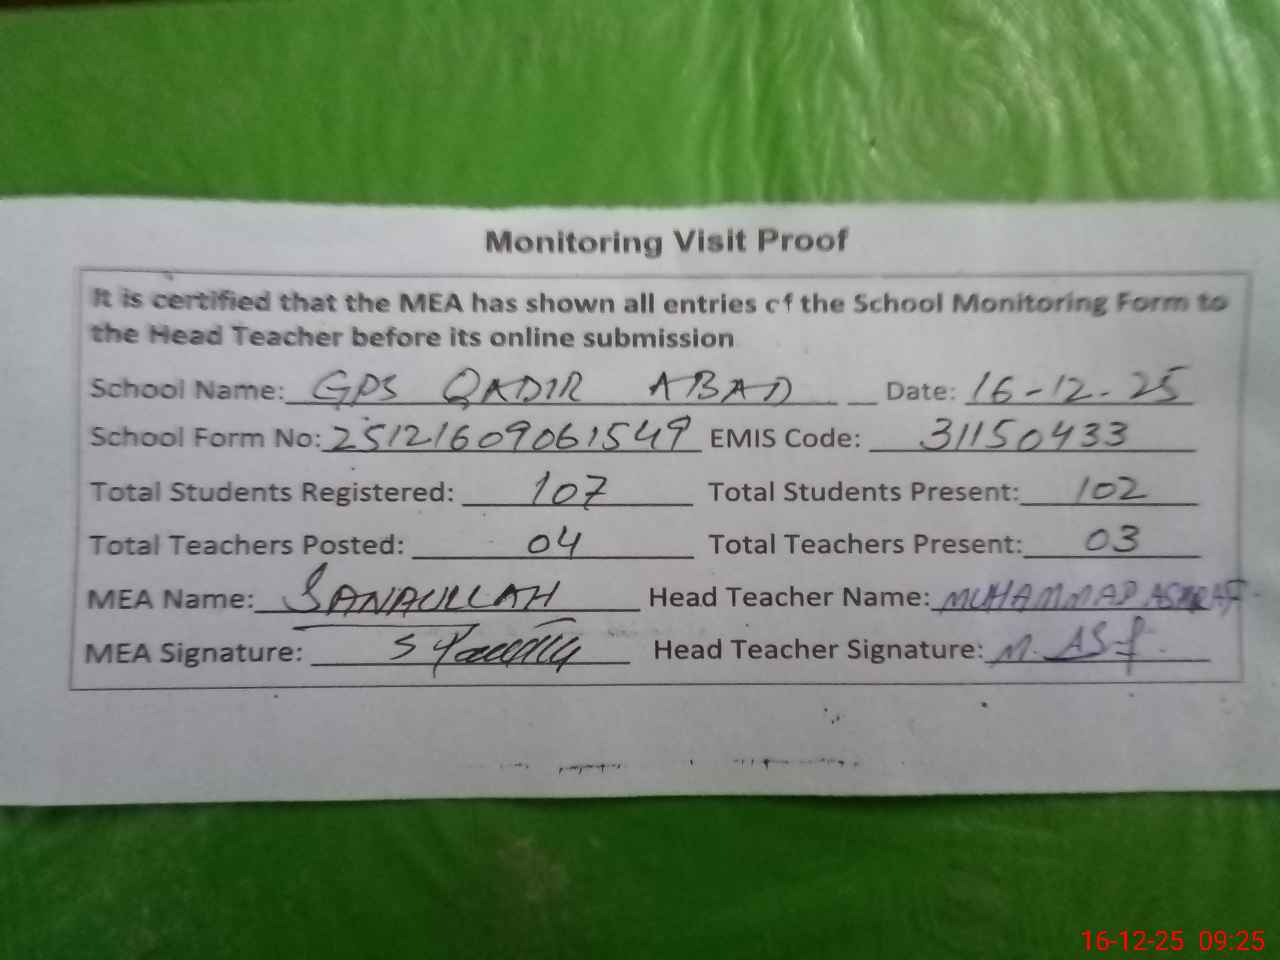 Monitoring Visit Proof
It is certified that the MEA has shown all entries of the School Monitoring Form to
the Head Teacher before its online submission
School Name: GPS QADIR ABAD Date: 16-12-25
School Form No: 25121609061549 EMIS Code: 31150433
Total Students Registered: 107 Total Students Present: 102
Total Teachers Posted: 04 Total Teachers Present: 03
MEA Name: SANAULLAH Head Teacher Name: MUHAMMAD ASHRAF
MEA Signature: Head Teacher Signature: M. ASf
16-12-25 09:25